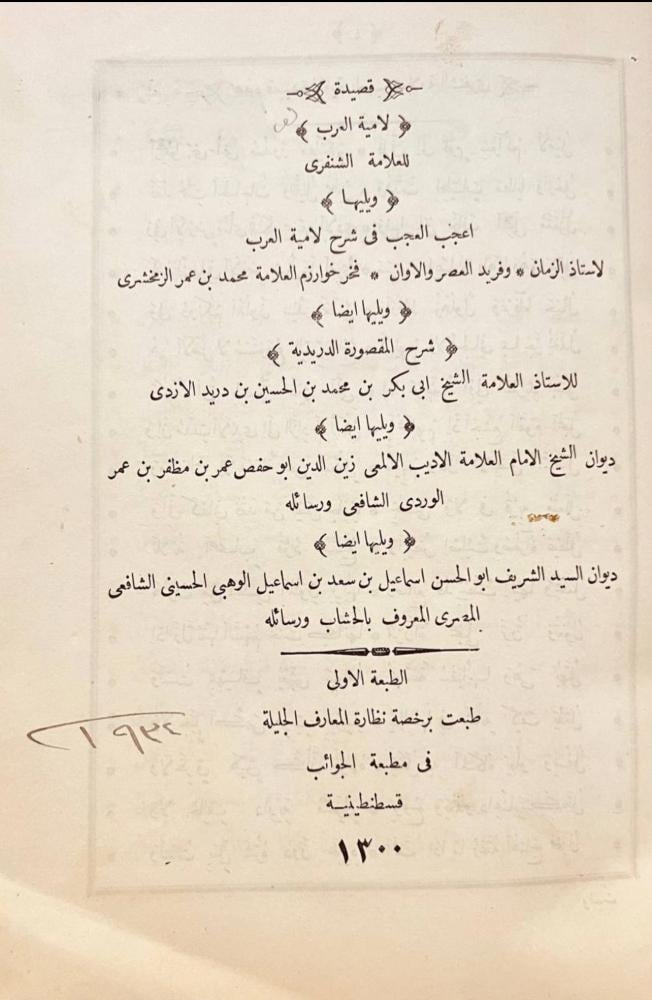 قصيدة
﴿ لامية العرب ﴾
للعلامة الشنفرى
﴿ ويليها ﴾
اعجب العجب فى شرح لامية العرب
لاستاذ الزمان * وفريد العصر والاوان * فخر خوارزم العلامة محمد بن عمر الزمخشرى
﴿ ويليها ايضا ﴾
﴿ شرح المقصورة الدريدية ﴾
للاستاذ العلامة الشيخ ابى بكر بن محمد بن الحسين بن دريد الازدى
﴿ ويليها ايضا ﴾
ديوان الشيخ الامام العلامة الاديب الالمعى زين الدين ابو حفص عمر بن مظفر بن عمر
الوردى الشافعى ورسائله
﴿ ويليها ايضا ﴾
ديوان السيد الشريف ابو الحسن اسماعيل بن سعد بن اسماعيل الوهبى الحسينى الشافعى
المصرى المعروف بالخشاب ورسائله
الطبعة الاولى
طبعت برخصة نظارة المعارف الجليلة
فى مطبعة الجوائب
قسطنطينية
١٣٠٠